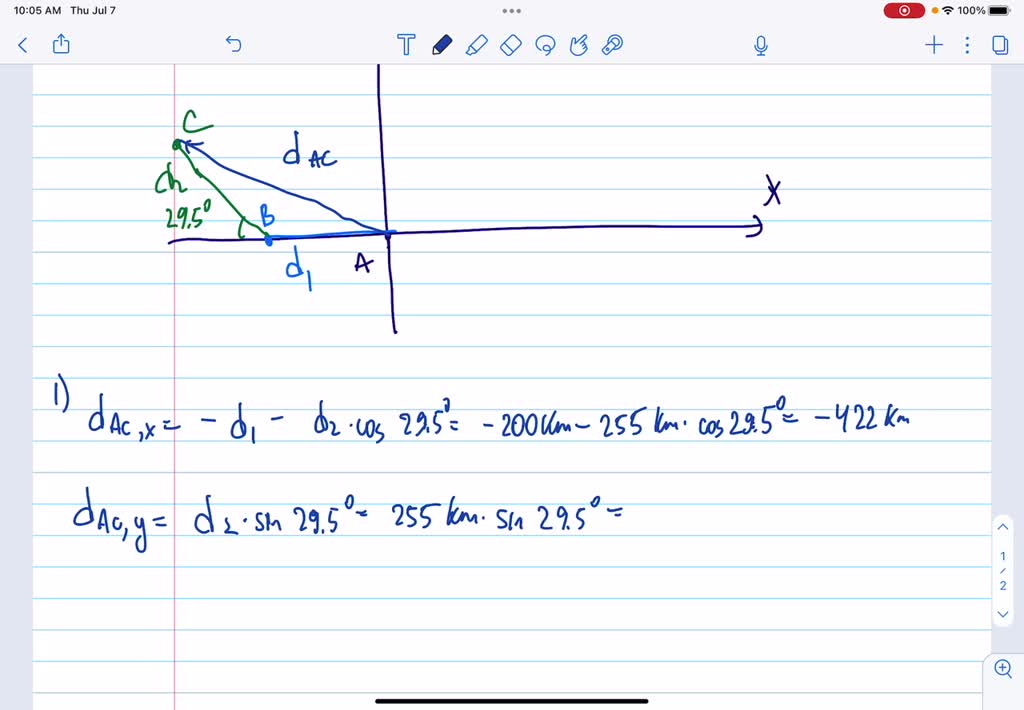 10:05 AM Thu Jul 7
100%
T
C
d AC
X
d2
29.5°
B
d1
A
1)
dAC,x = - d1 - d2 · cos 29.5° = - 200 km - 255 km · cos 29.5° = - 422 km
dAC,y = d2 · sin 29.5° = 255 km · sin 29.5° =
1
/
2